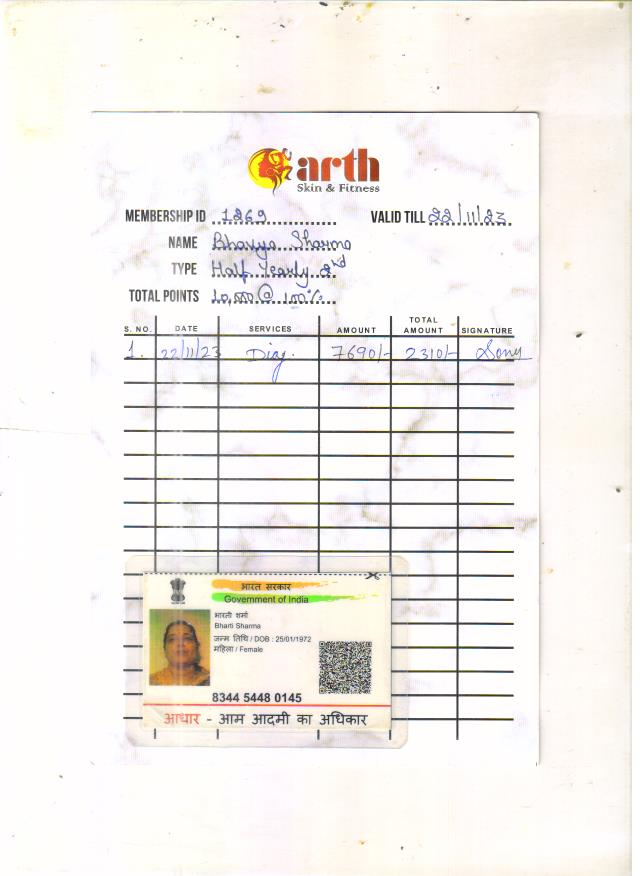 arth
Skin & Fitness
MEMBERSHIP ID 1269 VALID TILL 22/11/23
NAME Bhavya Sharma
TYPE Half Yearly 2nd
TOTAL POINTS 10,000 @ 100%
S. NO. DATE SERVICES AMOUNT TOTAL AMOUNT SIGNATURE
1. 22/11/23 7690/- 2310/- Sony
भारत सरकार
Government of India
भारती शर्मा
Bharti Sharma
जन्म तिथि / DOB : 25/01/1972
महिला / Female
8344 5448 0145
आधार - आम आदमी का अधिकार